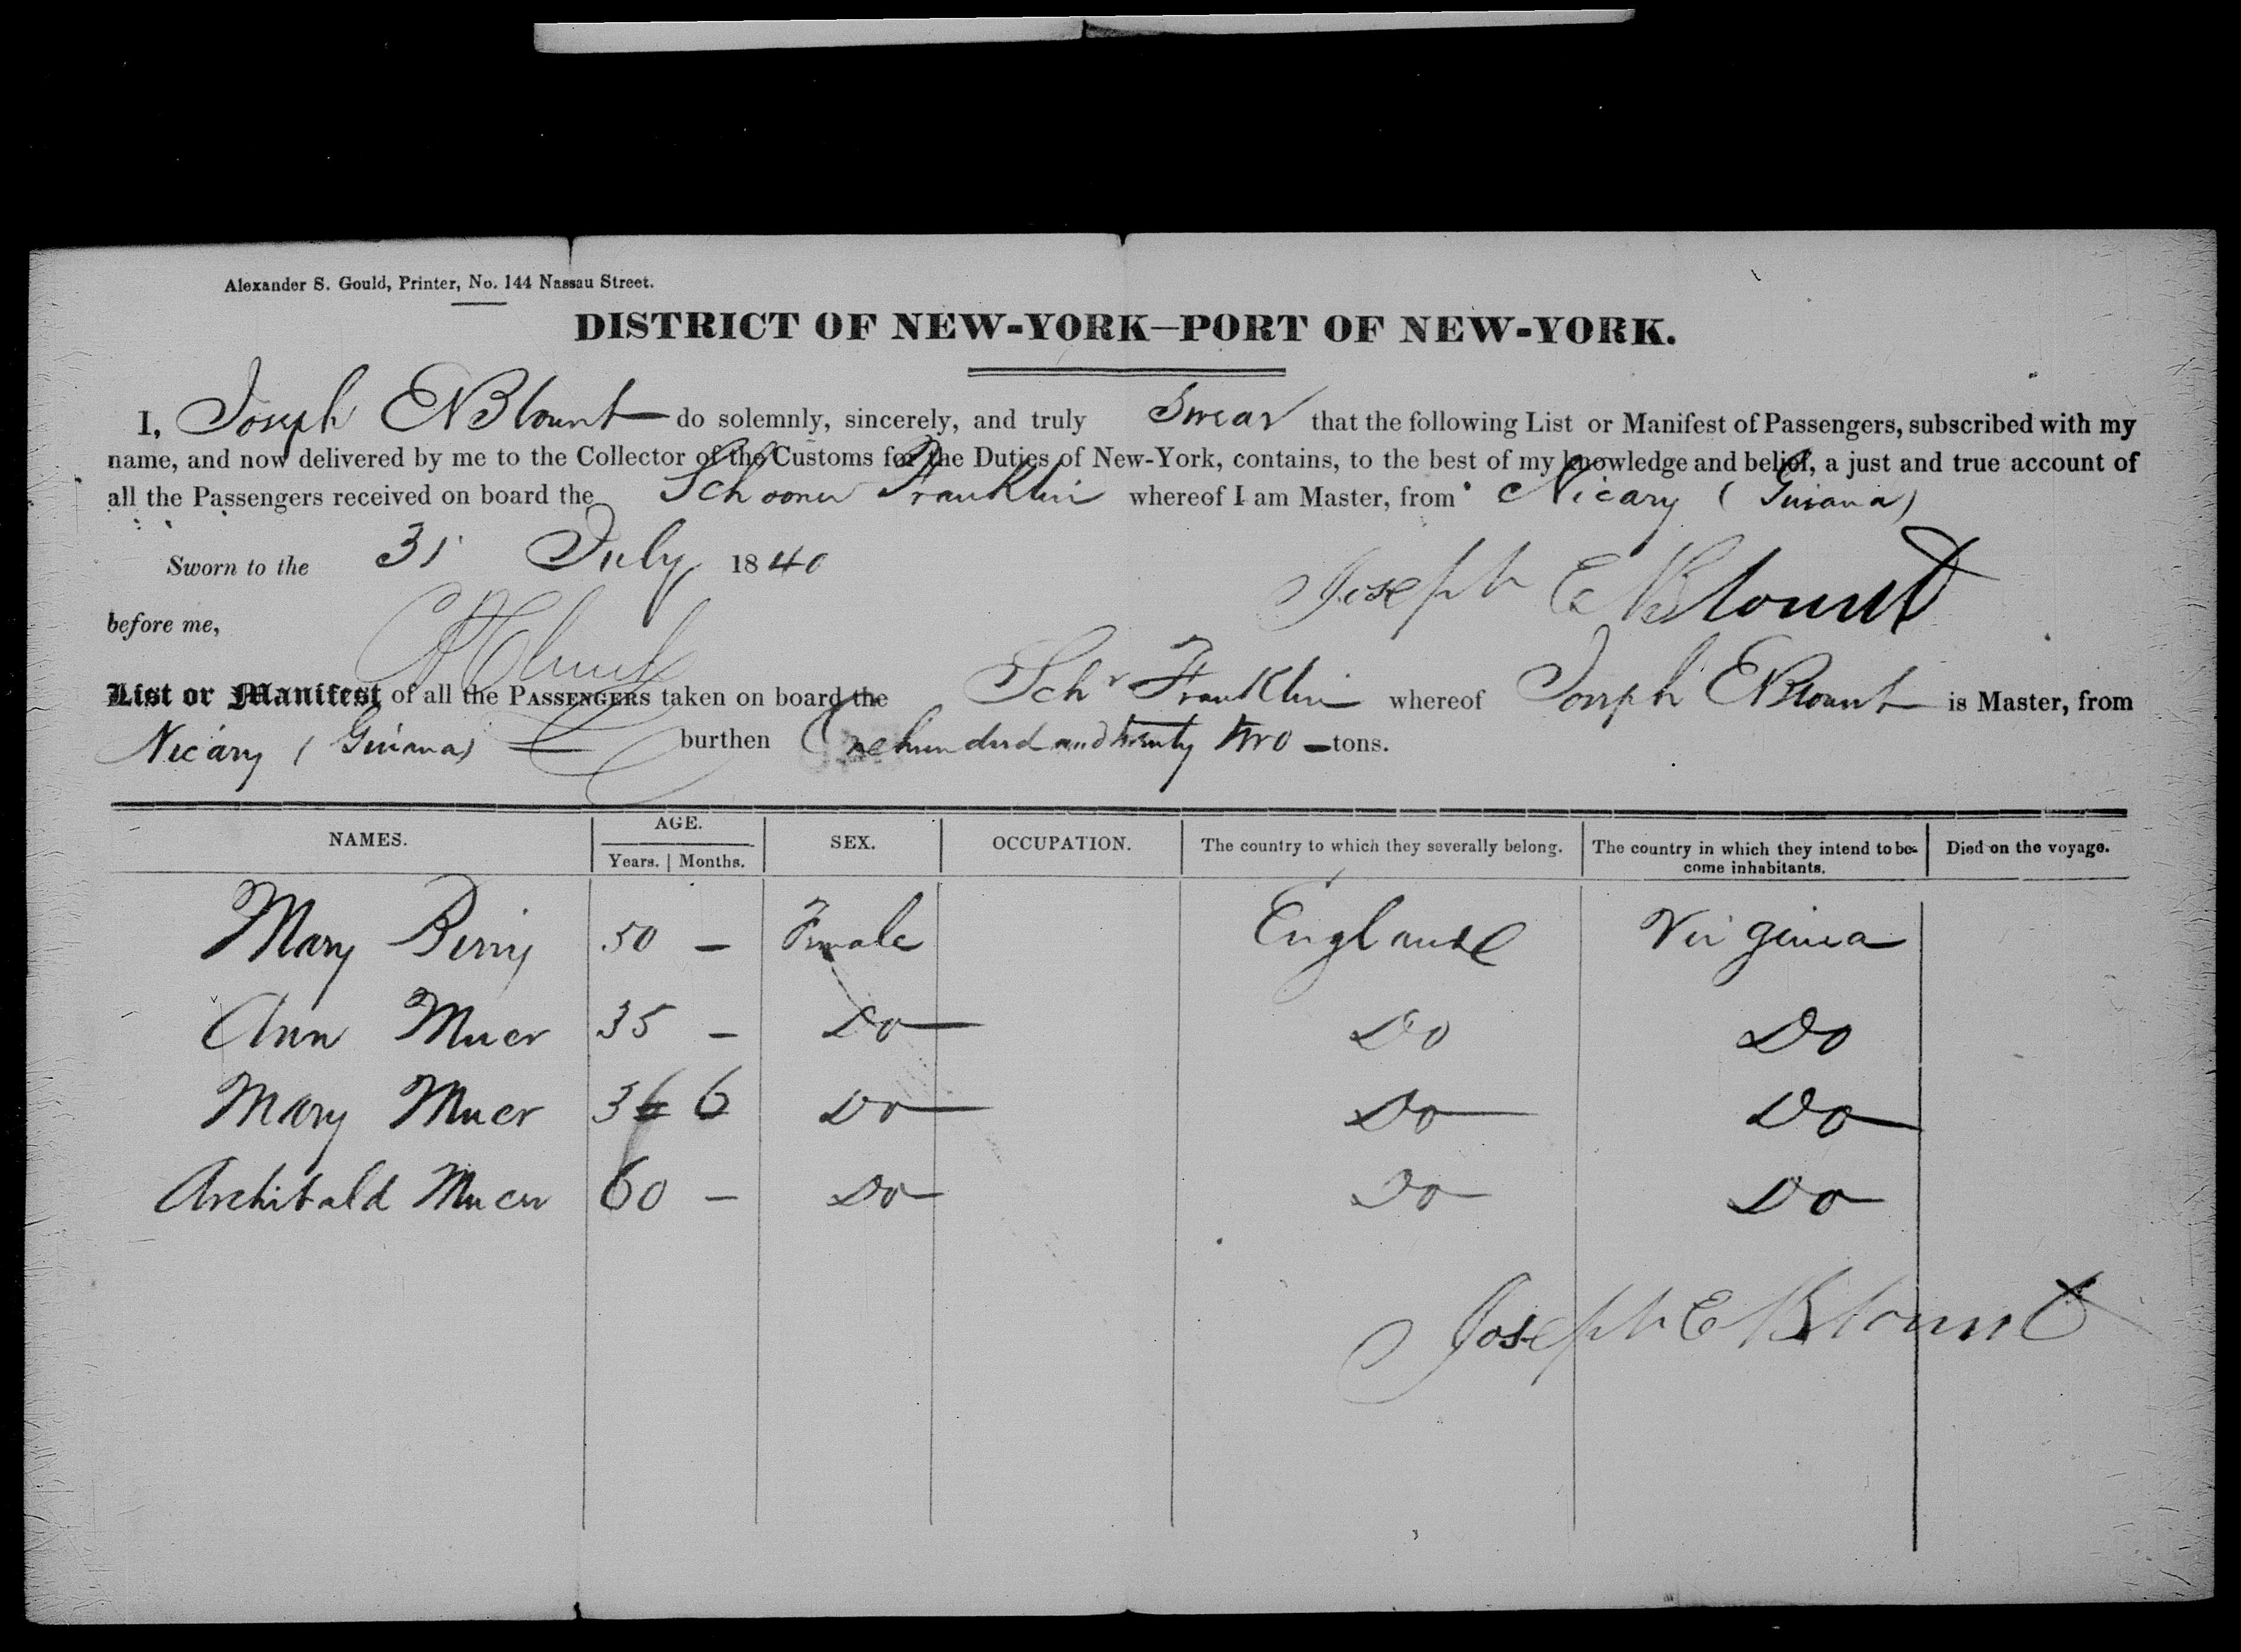 Alexander S. Gould, Printer, No. 144 Nassau Street.
DISTRICT OF NEW-YORK—PORT OF NEW-YORK.
I, Joseph E Blount do solemnly, sincerely, and truly Swear that the following List or Manifest of Passengers, subscribed with my
name, and now delivered by me to the Collector of the Customs for the Duties of New-York, contains, to the best of my knowledge and belief, a just and true account of
all the Passengers received on board the Schooner Franklin whereof I am Master, from Nicary (Guiana)
Sworn to the 31 July 1840
Joseph E Blount
before me,
List or Manifest of all the PASSENGERS taken on board the Schr Franklin whereof Joseph E Blount is Master, from
Nicary (Guiana) burthen One hundred and twenty two tons.
NAMES. AGE. SEX. OCCUPATION. The country to which they severally belong. The country in which they intend to be- Died on the voyage.
Years. Months. come inhabitants.
Mary Berry 50 — Female England Virginia
Ann Mucr 35 — Do Do Do
Mary Mucr 36 6 Do Do Do
Archibald Mucr 60 — Do Do Do
Joseph E Blount